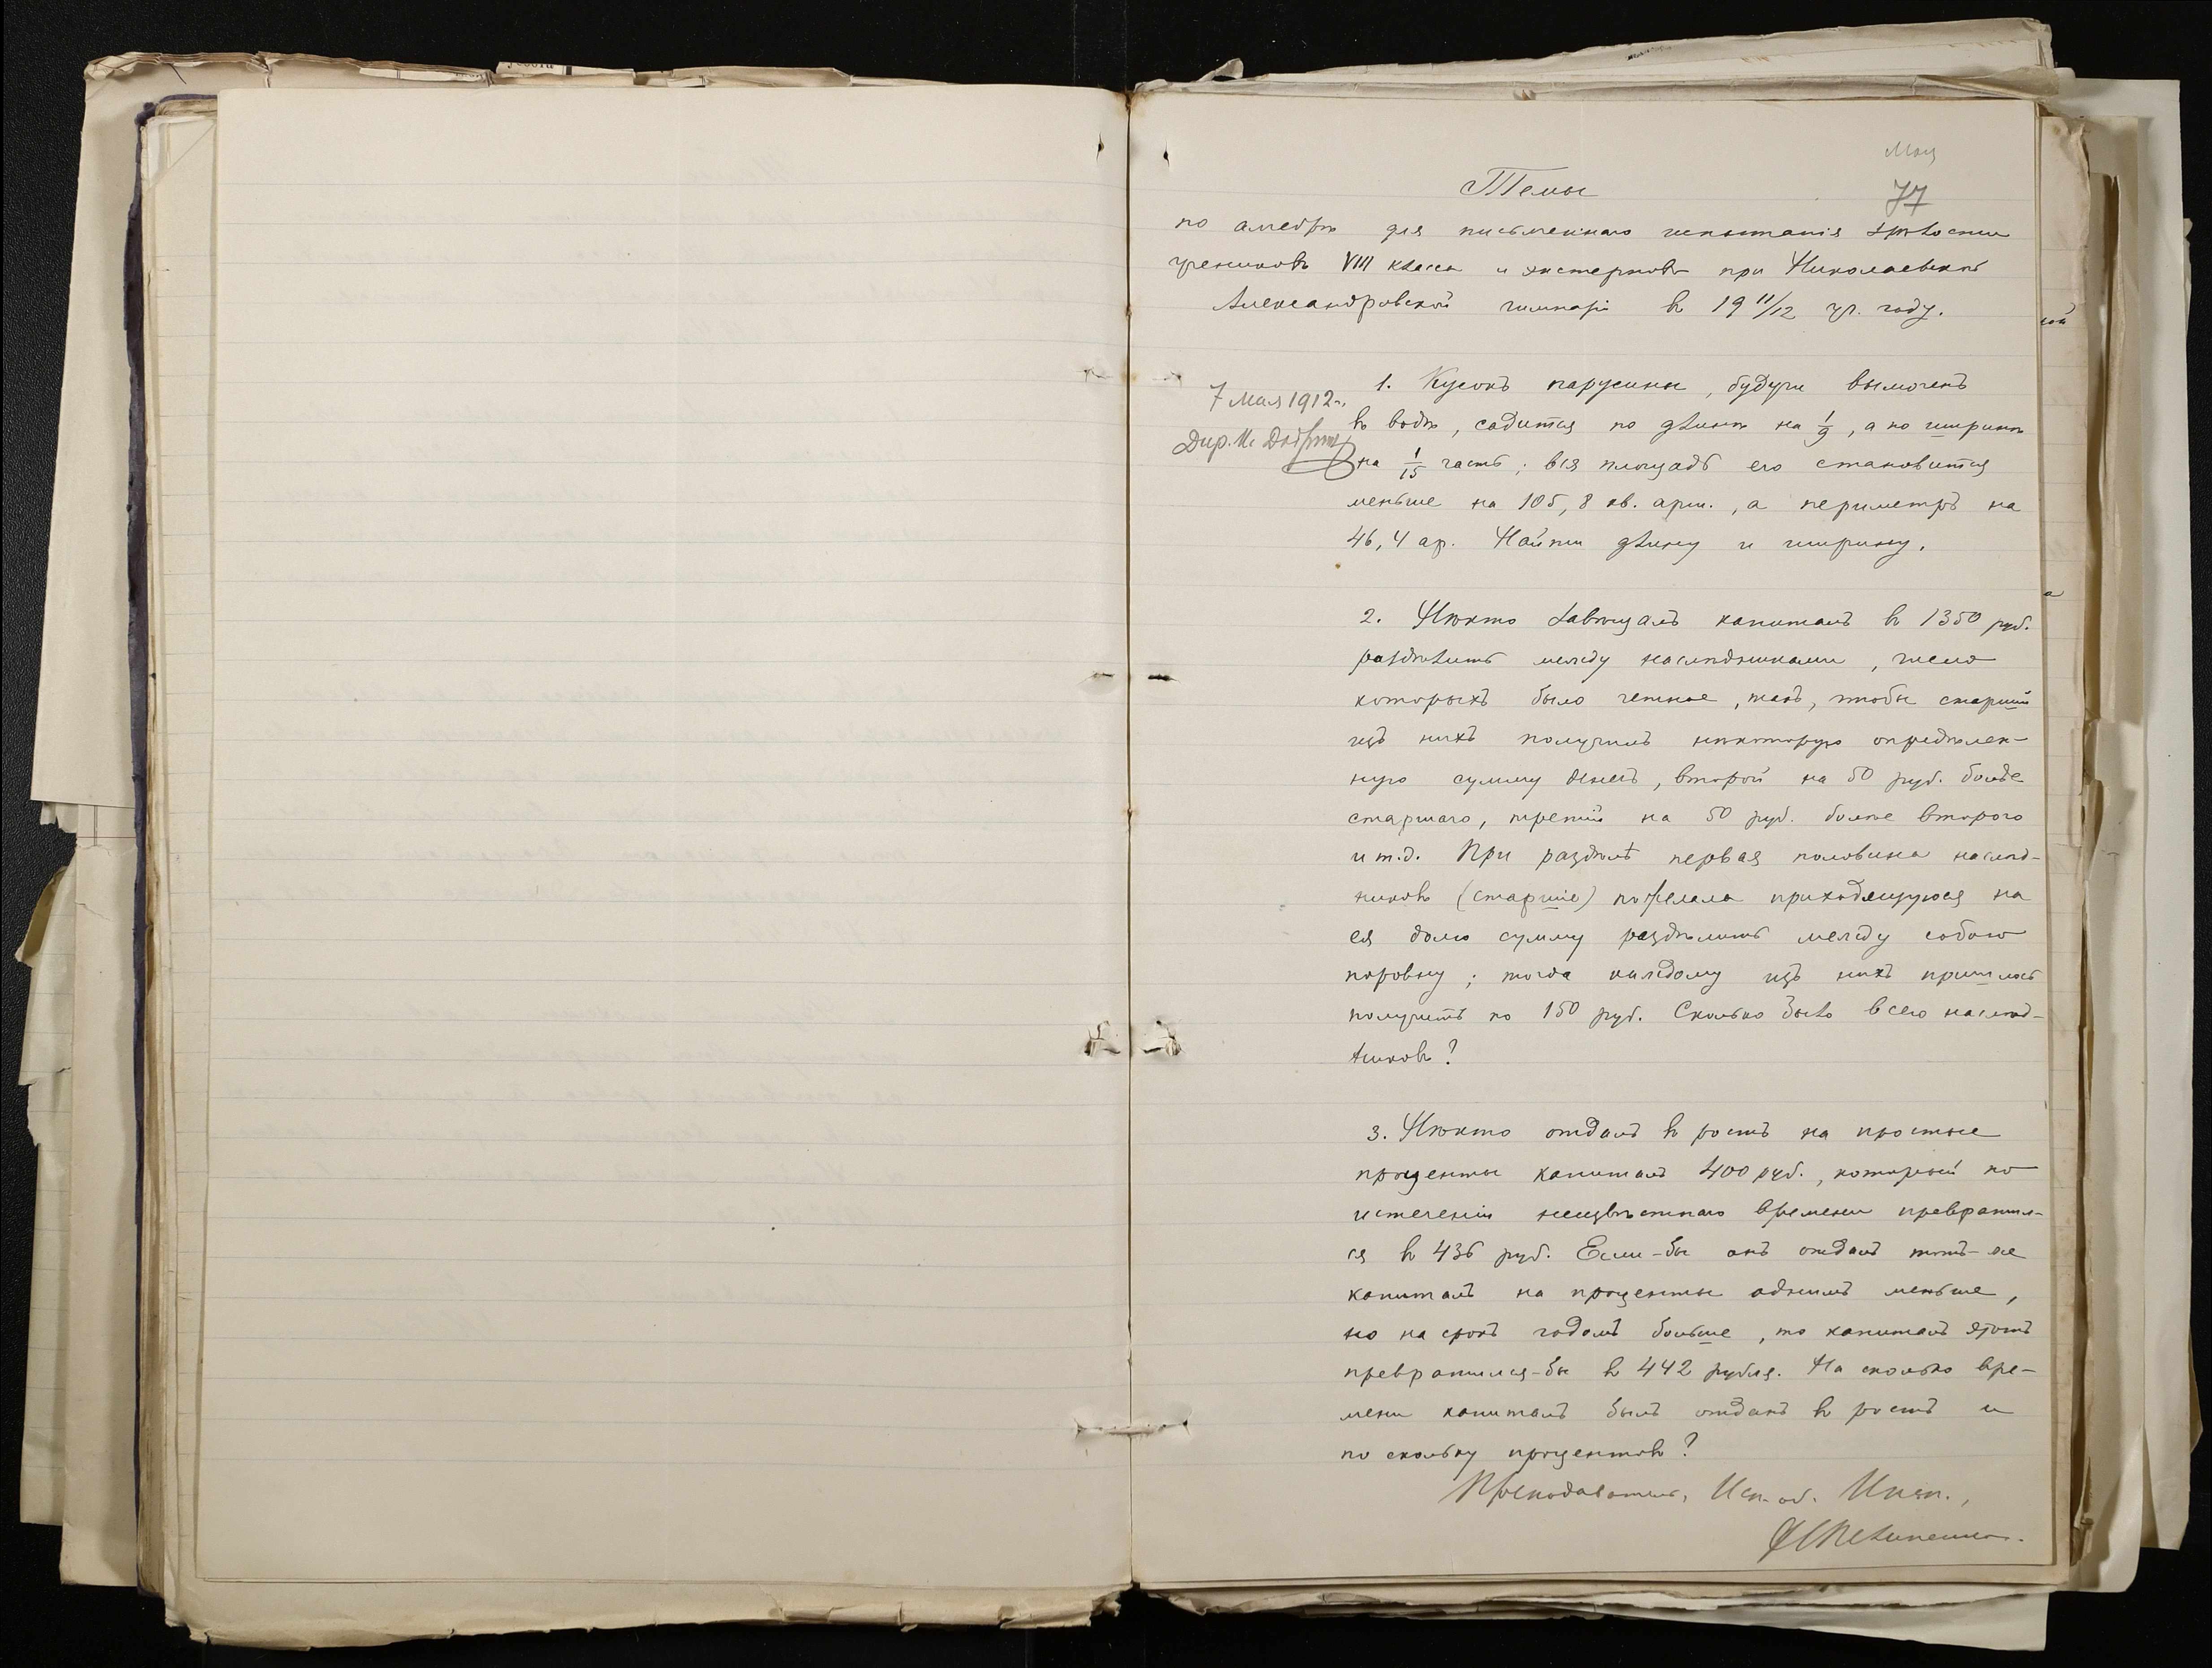 Темы
77
по алгебрѣ для письменнаго испытанія зрѣлости
учениковъ VIII класса и экстерновъ при Николаевской
Александровской гимназіи въ 19 11/12 уч. году.
7 мая 1912 г.
Дир. И.
1. Кусокъ парусины, будучи вымоченъ
въ водѣ, садится по длинѣ на 1/9, а по ширинѣ
на 1/15 часть; вся площадь его становится
меньше на 105,8 кв. арш., а периметръ на
46,4 ар. Найти длину и ширину.
2. Нѣкто завѣщалъ капиталъ въ 1350 руб.
раздѣлить между наслѣдниками, число
которыхъ было четное, такъ, чтобы старшій
изъ нихъ получилъ нѣкоторую опредѣлен-
ную сумму денегъ, второй на 50 руб. более
старшаго, третій на 50 руб. болѣе второго
и т.д. При раздѣлѣ первая половина наслѣд-
никовъ (старшіе) пожелала приходящуюся на
ея долю сумму раздѣлить между собою
поровну; тогда каждому изъ нихъ пришлось
получить по 150 руб. Сколько было всего наслѣд-
никовъ?
3. Нѣкто отдалъ въ ростъ на простые
проценты капиталъ 400 руб., который по
истеченіи неизвѣстнаго времени превратил-
ся въ 436 руб. Если-бы онъ отдалъ тотъ-же
капиталъ на проценты однимъ меньше,
но на срокъ годомъ больше, то капиталъ этотъ
превратился-бы въ 442 рубля. На сколько вре-
мени капиталъ былъ отданъ въ ростъ и
по скольку процентовъ?
Преподаватель, Исп. об. Инсп.,